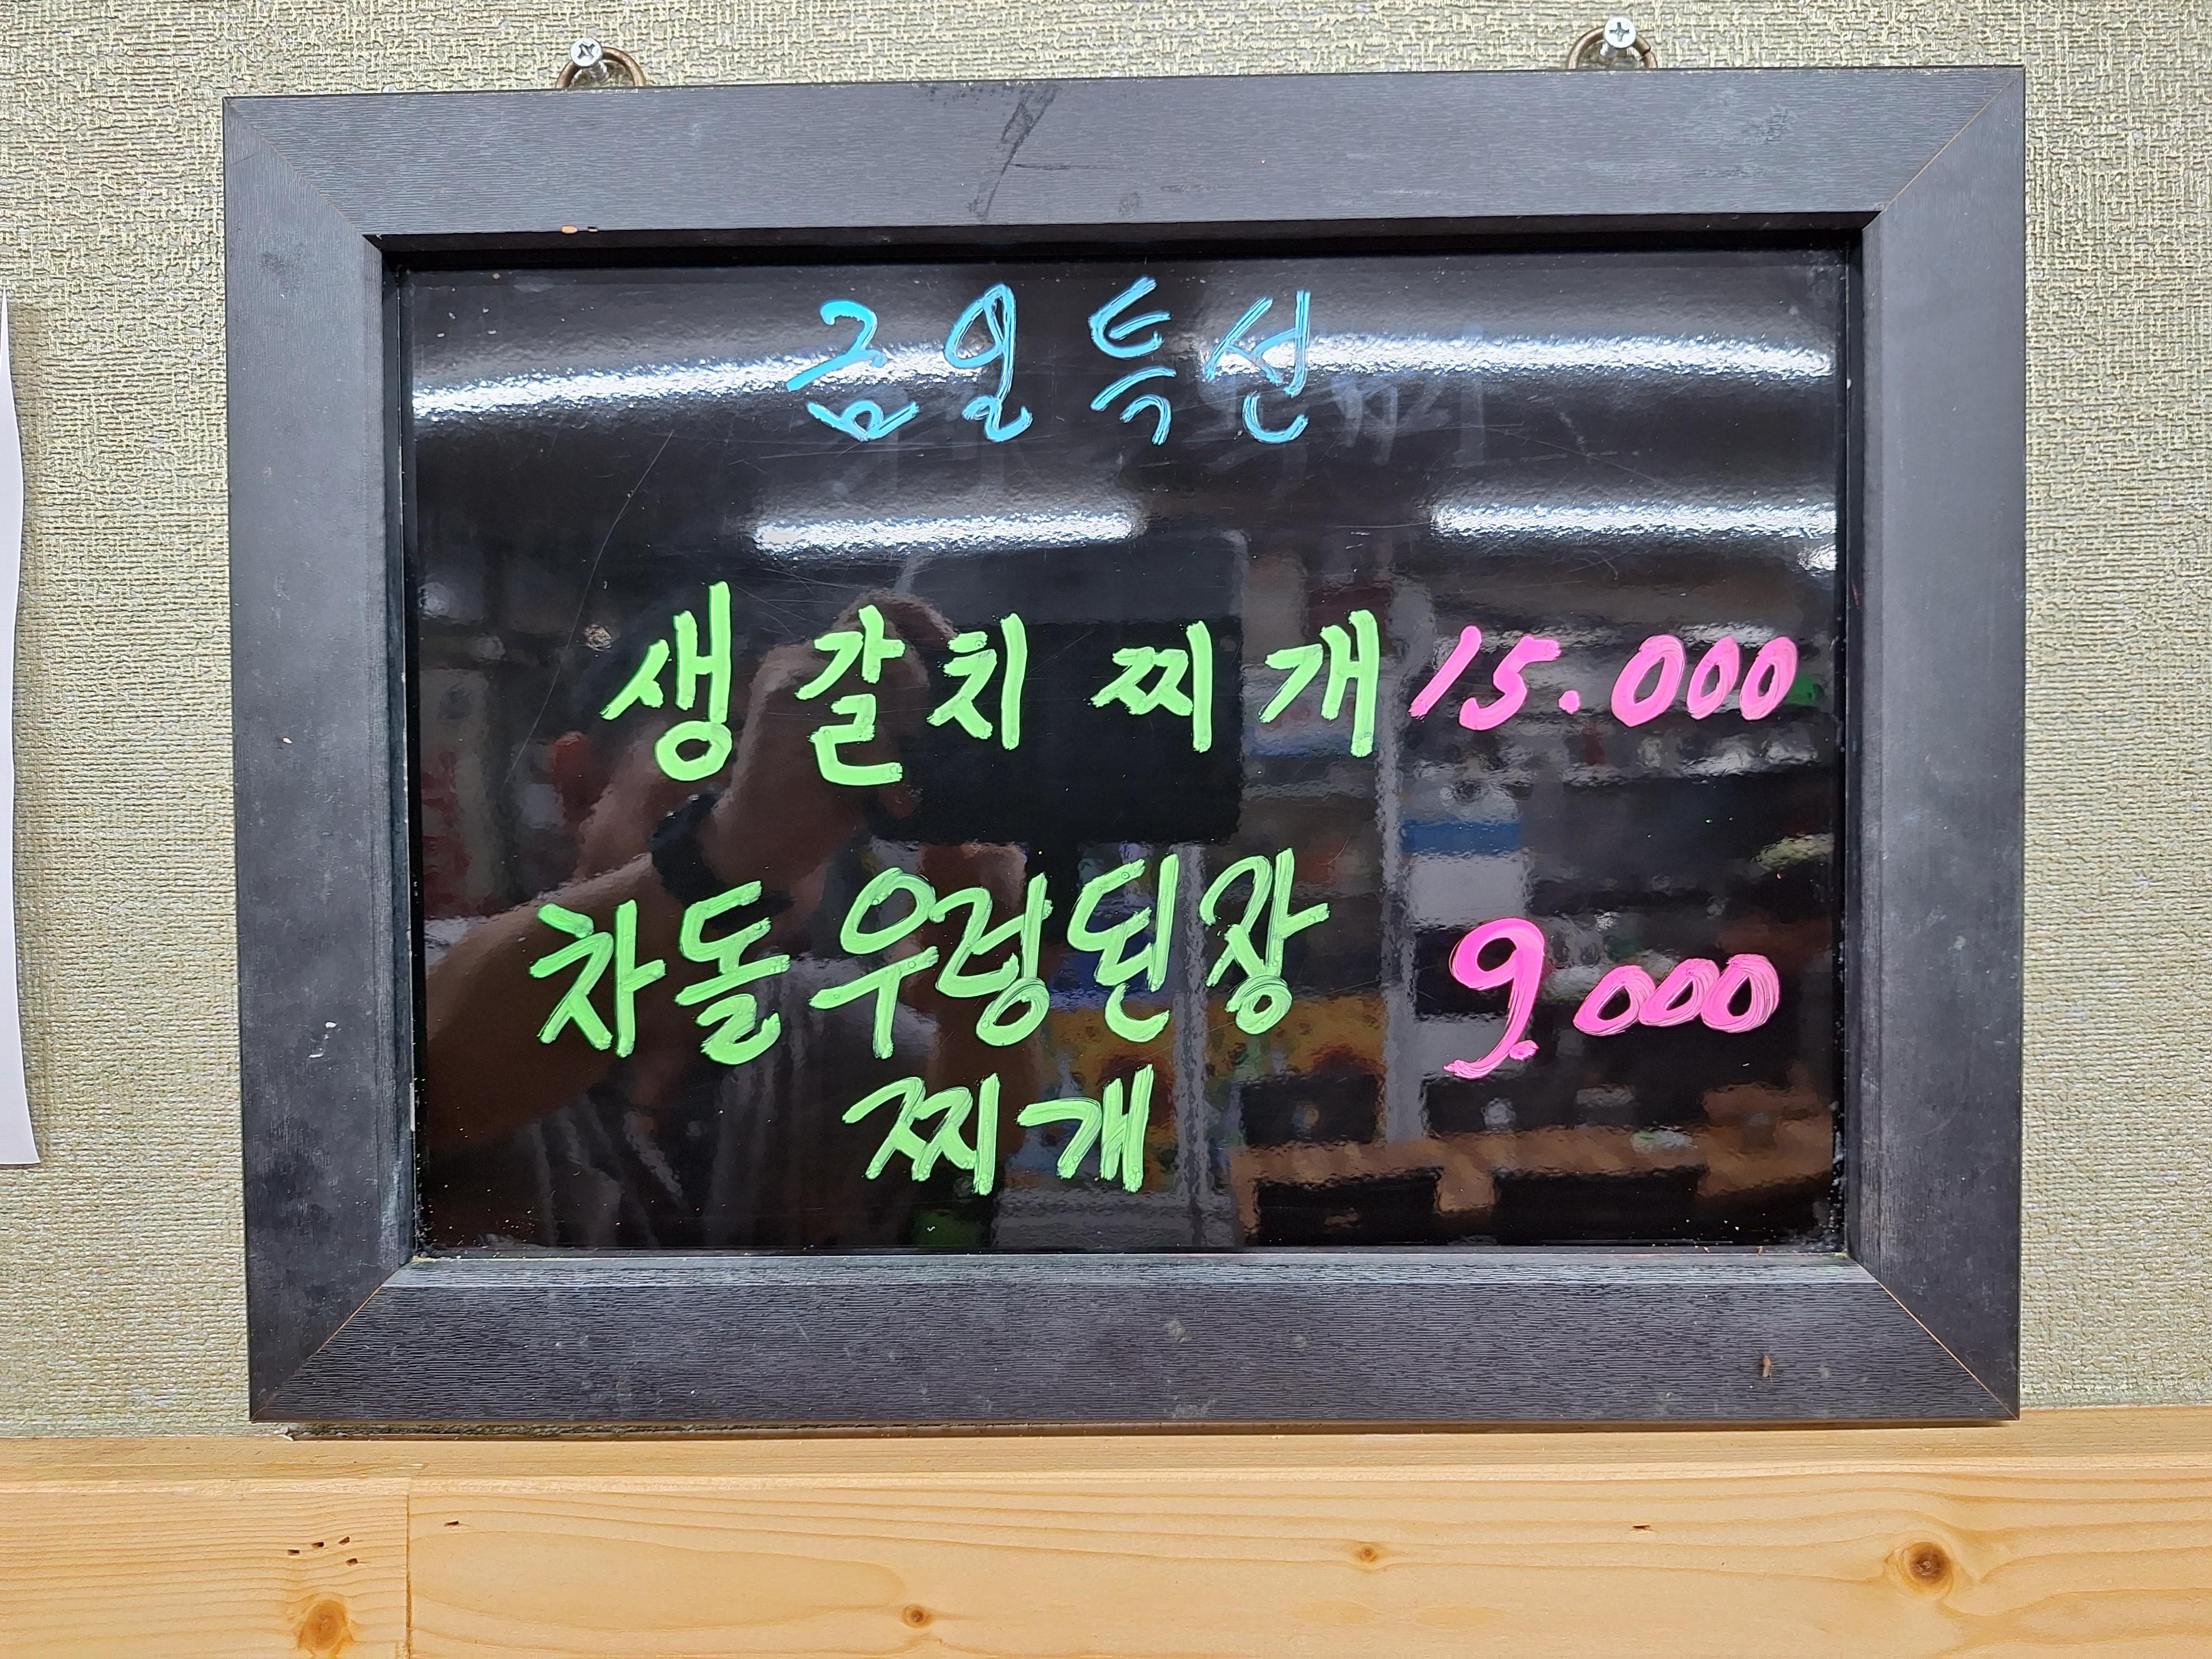 금일 특선
생갈치 찌개 15.000
차돌우렁된장 9.000
찌개